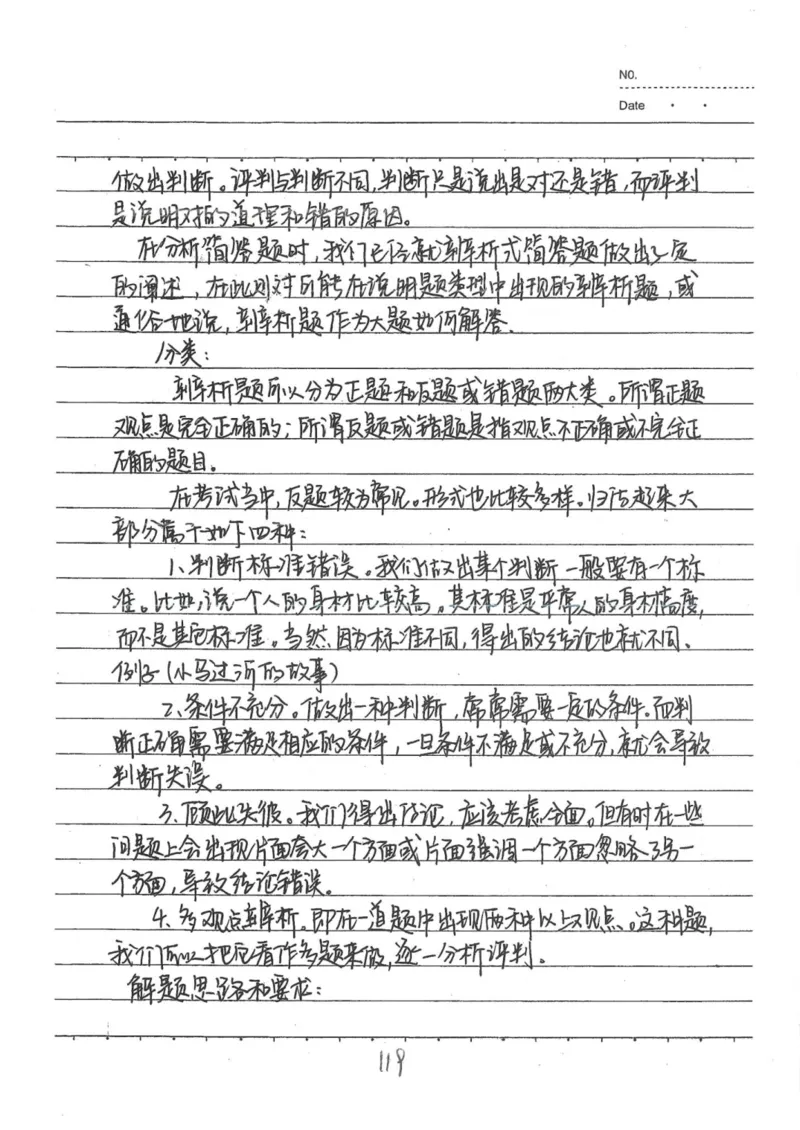 NO.
Date
做出判断。评判与判断不同,判断只是说出是对还是错,而评判
是说明对的道理和错的原因。
在分析简答题时,我们已经就辨析式简答题做出了一定
的阐述,在此则对可能在说明题类型中出现的辨析题,或
通俗地说,辨析题作为大题如何解答.
分类:
辨析题可以分为正题和反题或错题两大类。所谓正题
观点是完全正确的;所谓反题或错题是指观点不正确或不完全正
确的题目。
在考试当中,反题较为常见。形式也比较多样。归结起来大
部分属于如下四种:
1、判断标准错误。我们做出某个判断一般要有一个标
准。比如,说一个人的身材比较高。其标准是平常人的身材高度,
而不是其它标准。当然,因为标准不同,得出的结论也就不同、
例子(小马过河的故事)
2、条件不充分。做出一种判断,常常需要一定的条件。而判
断正确需要满足相应的条件,一旦条件不满足或不充分,就会导致
判断失误。
3、顾此失彼。我们得出结论,应该考虑全面。但有时在一些
问题上会出现片面夸大一个方面或片面强调一个方面忽略了另一
个方面,导致结论错误。
4、多观点辨析。即在一道题中出现两种以上观点。这种题,
我们可以把它看作多题来做,逐一分析评判.
解题思路和要求:
119